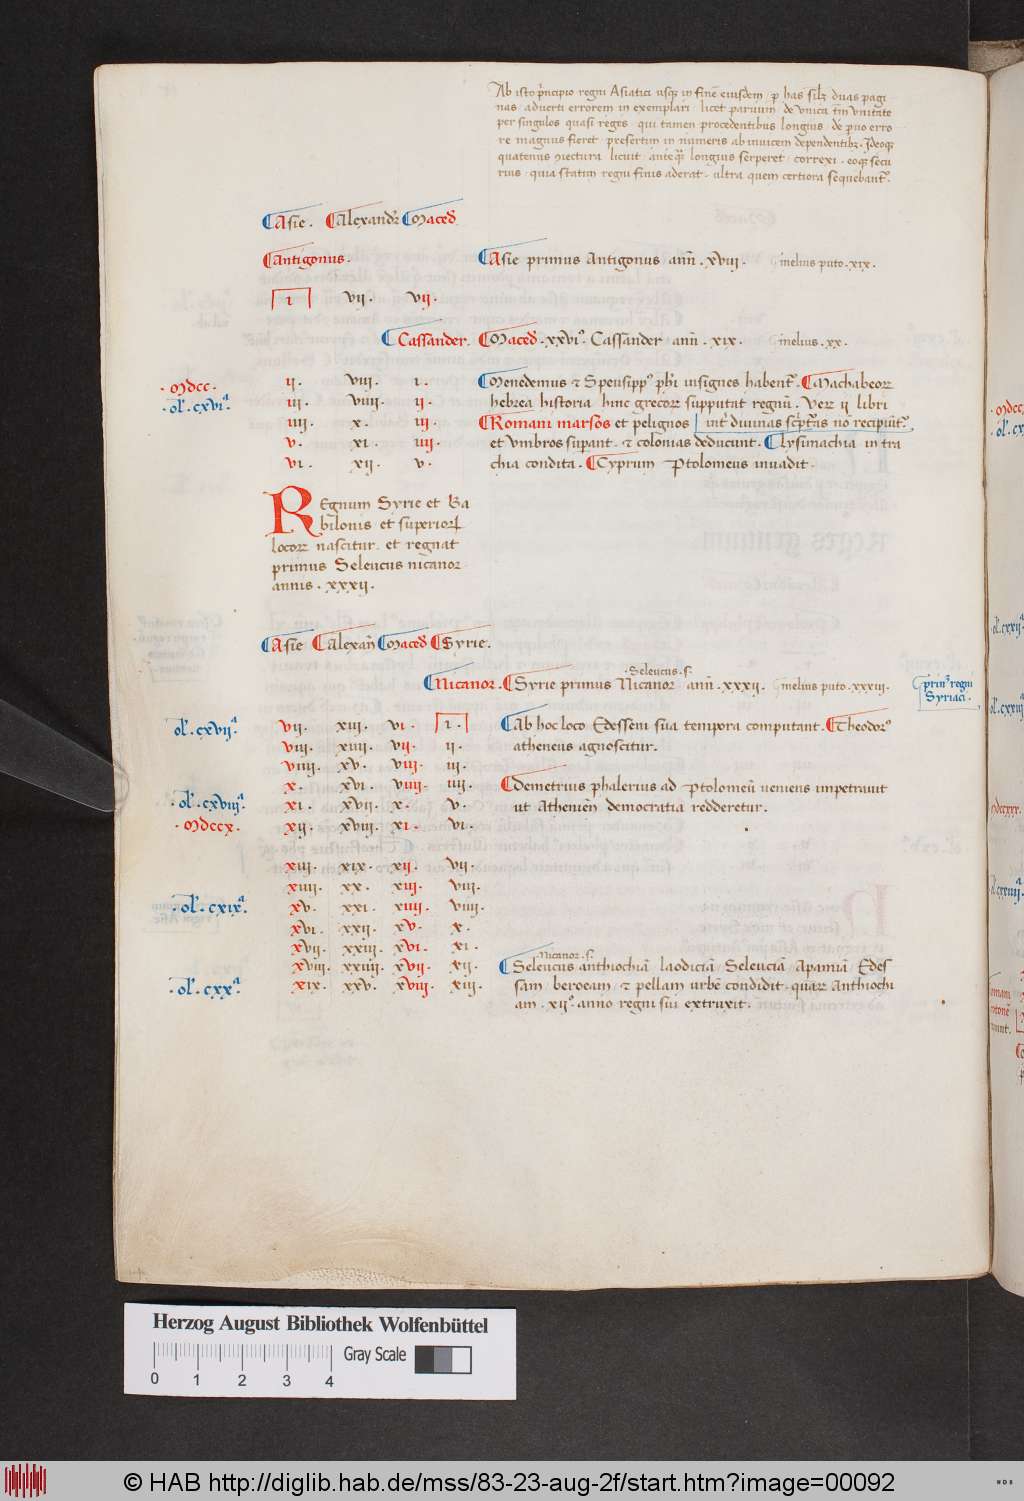 Ab isto p̄ncipio regni Asiatici usq; in finē eiusdem · p has silʒ duas pagi
nas · adverti errorem in exemplari · licet parvum · de unica tm̄ unitate
per singulos quasi reges · qui tamen procedentibus longius · de p̄uo erro
re magnus fieret · presertim in numeris ab invicem dependentibꝫ · Ideoqꝫ
quatenus licuit · anteqꝫ longius serperet · correxi · eoqꝫ secu
rius · quia statim regni finis aderat · ultra quem certiora sequebantᷣ.
Asie · Alexandꝛ̄ Maced
Antigonus · Asie primus Antigonus ann̄ · xviii · melius puto · xix ·
i vii · vii ·
Cassander · Maced · xxviº · Cassander ann̄ · xix · melius · xx ·
· Mdcc · ii · viii · i · Menedemus ⁊ Speusippº pħi insignes habentᷣ · Machabeoꝝ
· ol' · cxviª · iii · viiii · ii · hebrea historia hinc grecoꝝ supputat regnū · Veꝝ ii libri
iiii · x · iii · Romani marsos et pelignos int' divinas sc̄pt̄as nō recipiūtᷣ ·
v · xi · iiii · et Umbros sup̄ant · ⁊ colonias deducunt · Lysimachia in tra
vi · xii · v · chia condita · Cyprum Ptolomeus invadit ·
REgnum Syrie et Ba
bilonis et superioꝝ
locoꝝ nascitur · et regnat
primus Seleucus nicanor
annis · xxxii ·
Asie Alexan̄ Maced Syrie ·
· Seleucus · s ·
Nicanor · Syrie primus Nicanor ann̄ · xxxii · melius puto · xxxiii · prinᷣ regni
Syriaci ·
ol' · cxviiª · vii · xiii · vi · i · Ab hoc loco Edesseni sua tempora computant · Theodorº
viii · xiiii · vii · ii · atheneus agnoscitur ·
viiii · xv · viii · iii ·
x · xvi · viiii · iiii · Demetrius phalerius ad Ptolomeū veniens impetravit
· ol' · cxviiiª · xi · xvii · x · v · ut Athenien̄ democratia redderetur ·
· Mdccx · xii · xviii · xi · vi ·
xiii · xix · xii · vii ·
xiiii · xx · xiii · viii ·
· ol' · cxixª · xv · xxi · xiiii · viiii ·
xvi · xxii · xv · x ·
xvii · xxiii · xvi · xi ·
Nicanor · s ·
xviii · xxiiii · xvii · xii · Seleucus anthiochiā laodiciā Seleuciā Apamiā Edes
· ol' · cxxª · xix · xxv · xviii · xiii · sam · beroeam · ⁊ pellam urbē condidit · quaꝝ Anthiochi
am · xiiº · anno regni sui extruxit ·
· Mdcc
· ol' · cx
ol' · cxxii
ol' · cxxiii
Mdccxx
ol' · cxxiiii
Herzog August Bibliothek Wolfenbüttel
Gray Scale
0 1 2 3 4
© HAB http://diglib.hab.de/mss/83-23-aug-2f/start.htm?image=00092